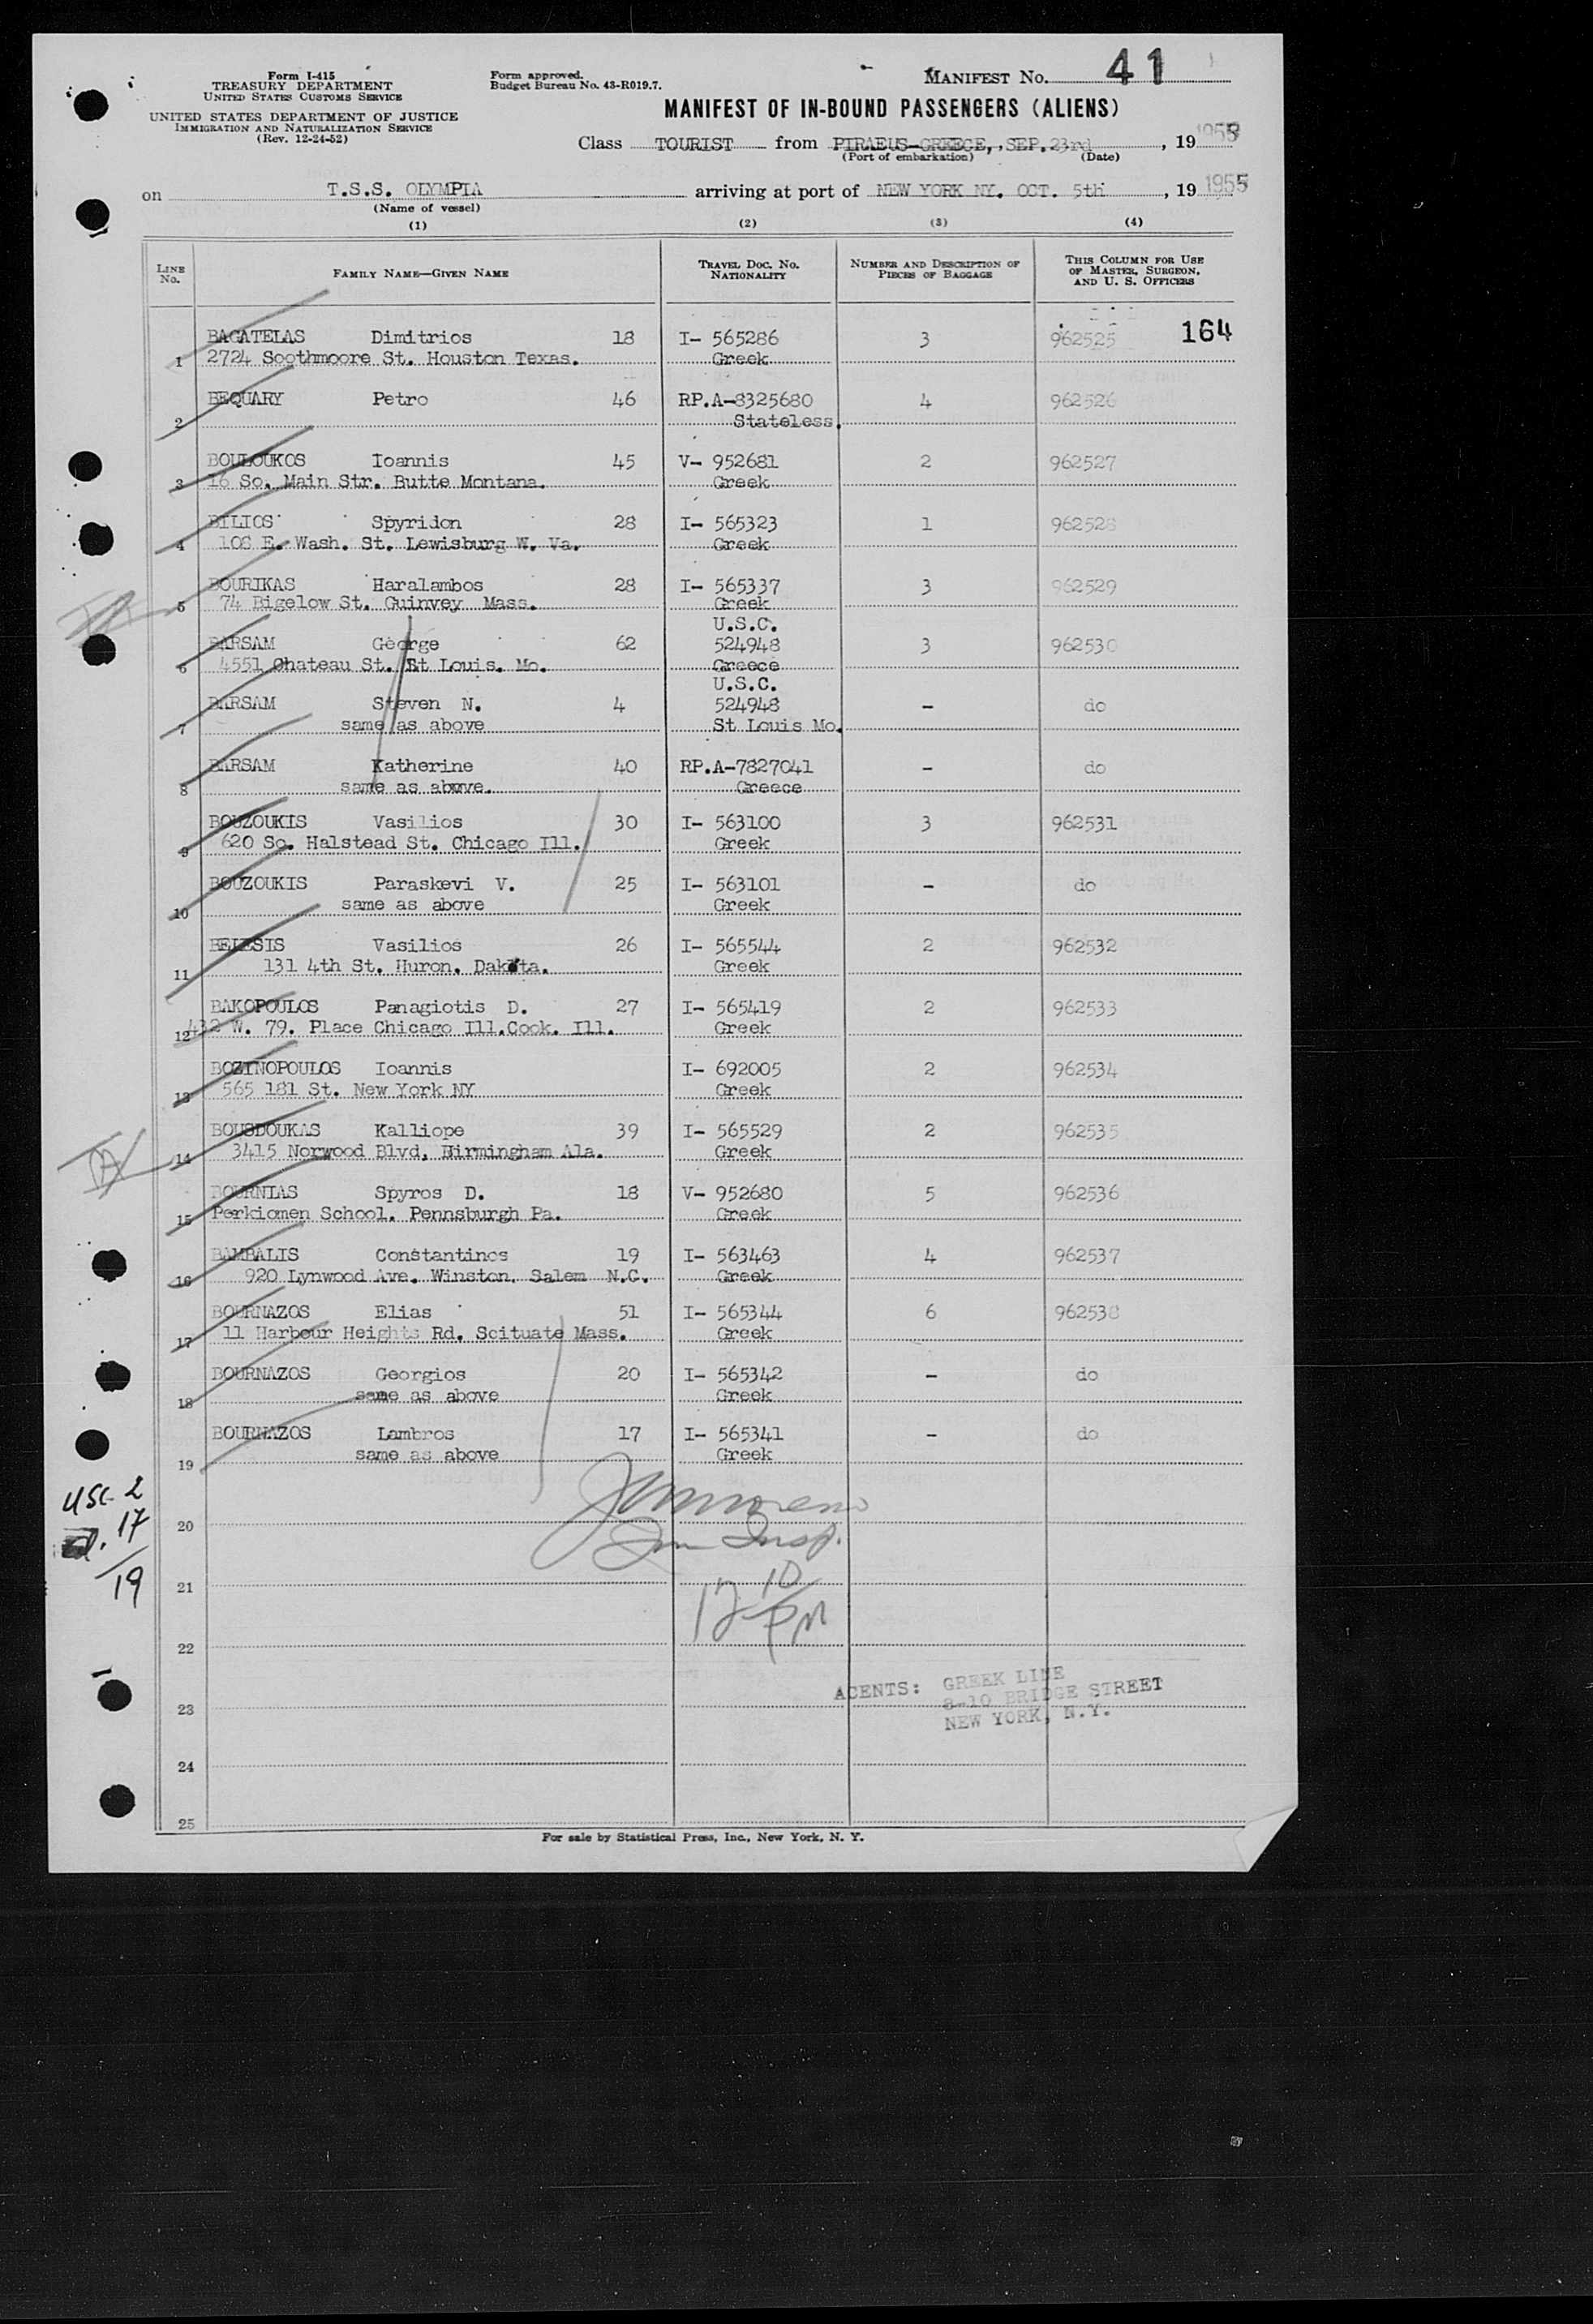 Form I-415
TREASURY DEPARTMENT
UNITED STATES CUSTOMS SERVICE
UNITED STATES DEPARTMENT OF JUSTICE
IMMIGRATION AND NATURALIZATION SERVICE
(Rev. 12-24-52)
Form approved.
Budget Bureau No. 43-R019.7.
MANIFEST No. 41
MANIFEST OF IN-BOUND PASSENGERS (ALIENS)
Class TOURIST from PIRAEUS-GREECE, SEP. 23rd, 19 1955
(Port of embarkation) (Date)
on T.S.S. OLYMPIA arriving at port of NEW YORK NY. OCT. 5th, 19 1955
(Name of vessel)
(1) (2) (3) (4)
LINE No. FAMILY NAME—GIVEN NAME TRAVEL DOC. No. NATIONALITY NUMBER AND DESCRIPTION OF PIECES OF BAGGAGE THIS COLUMN FOR USE OF MASTER, SURGEON, AND U. S. OFFICERS
BAGATELAS Dimitrios 18 I- 565286 3 962525 164
1 2724 Soothmoore St. Houston Texas. Greek
BEQUARY Petro 46 RP.A-8325680 4 962526
2 Stateless.
BOULOUKOS Ioannis 45 V- 952681 2 962527
3 16 So. Main Str. Butte Montana. Greek
BILIOS Spyridon 28 I- 565323 1 962528
4 108 E. Wash. St. Lewisburg W. Va. Greek
BOURIKAS Haralambos 28 I- 565337 3 962529
5 74 Bigelow St. Guinvey Mass. Greek
U.S.C.
BARSAM George 62 524948 3 962530
6 4551 Chateau St. St Louis. Mo. Greece
U.S.C.
BARSAM Steven N. 4 524948 - do
7 same as above St Louis Mo.
BARSAM Katherine 40 RP.A-7827041 - do
8 same as above. Greece
BOUZOUKIS Vasilios 30 I- 563100 3 962531
9 620 So. Halstead St. Chicago Ill. Greek
BOUZOUKIS Paraskevi V. 25 I- 563101 - do
10 same as above Greek
BELESIS Vasilios 26 I- 565544 2 962532
11 131 4th St. Huron. Dakota. Greek
BAKOPOULOS Panagiotis D. 27 I- 565419 2 962533
12 432 W. 79. Place Chicago Ill.Cook. Ill. Greek
BOZINOPOULOS Ioannis I- 692005 2 962534
13 565 181 St. New York NY Greek
BOUSDOUKAS Kalliope 39 I- 565529 2 962535
14 3415 Norwood Blvd, Birmingham Ala. Greek
BOURNIAS Spyros D. 18 V- 952680 5 962536
15 Perkiomen School. Pennsburgh Pa. Greek
BAMBALIS Constantinos 19 I- 563463 4 962537
16 920 Lynwood Ave. Winston. Salem N.C. Greek
BOURNAZOS Elias 51 I- 565344 6 962538
17 11 Harbour Heights Rd. Scituate Mass. Greek
BOURNAZOS Georgios 20 I- 565342 - do
18 same as above Greek
BOURNAZOS Lambros 17 I- 565341 - do
19 same as above Greek
USC 2
17
19
20
Imm Insp.
21
12 10 PM
22
AGENTS: GREEK LINE
8-10 BRIDGE STREET
23
NEW YORK, N.Y.
24
25
For sale by Statistical Press, Inc., New York, N. Y.